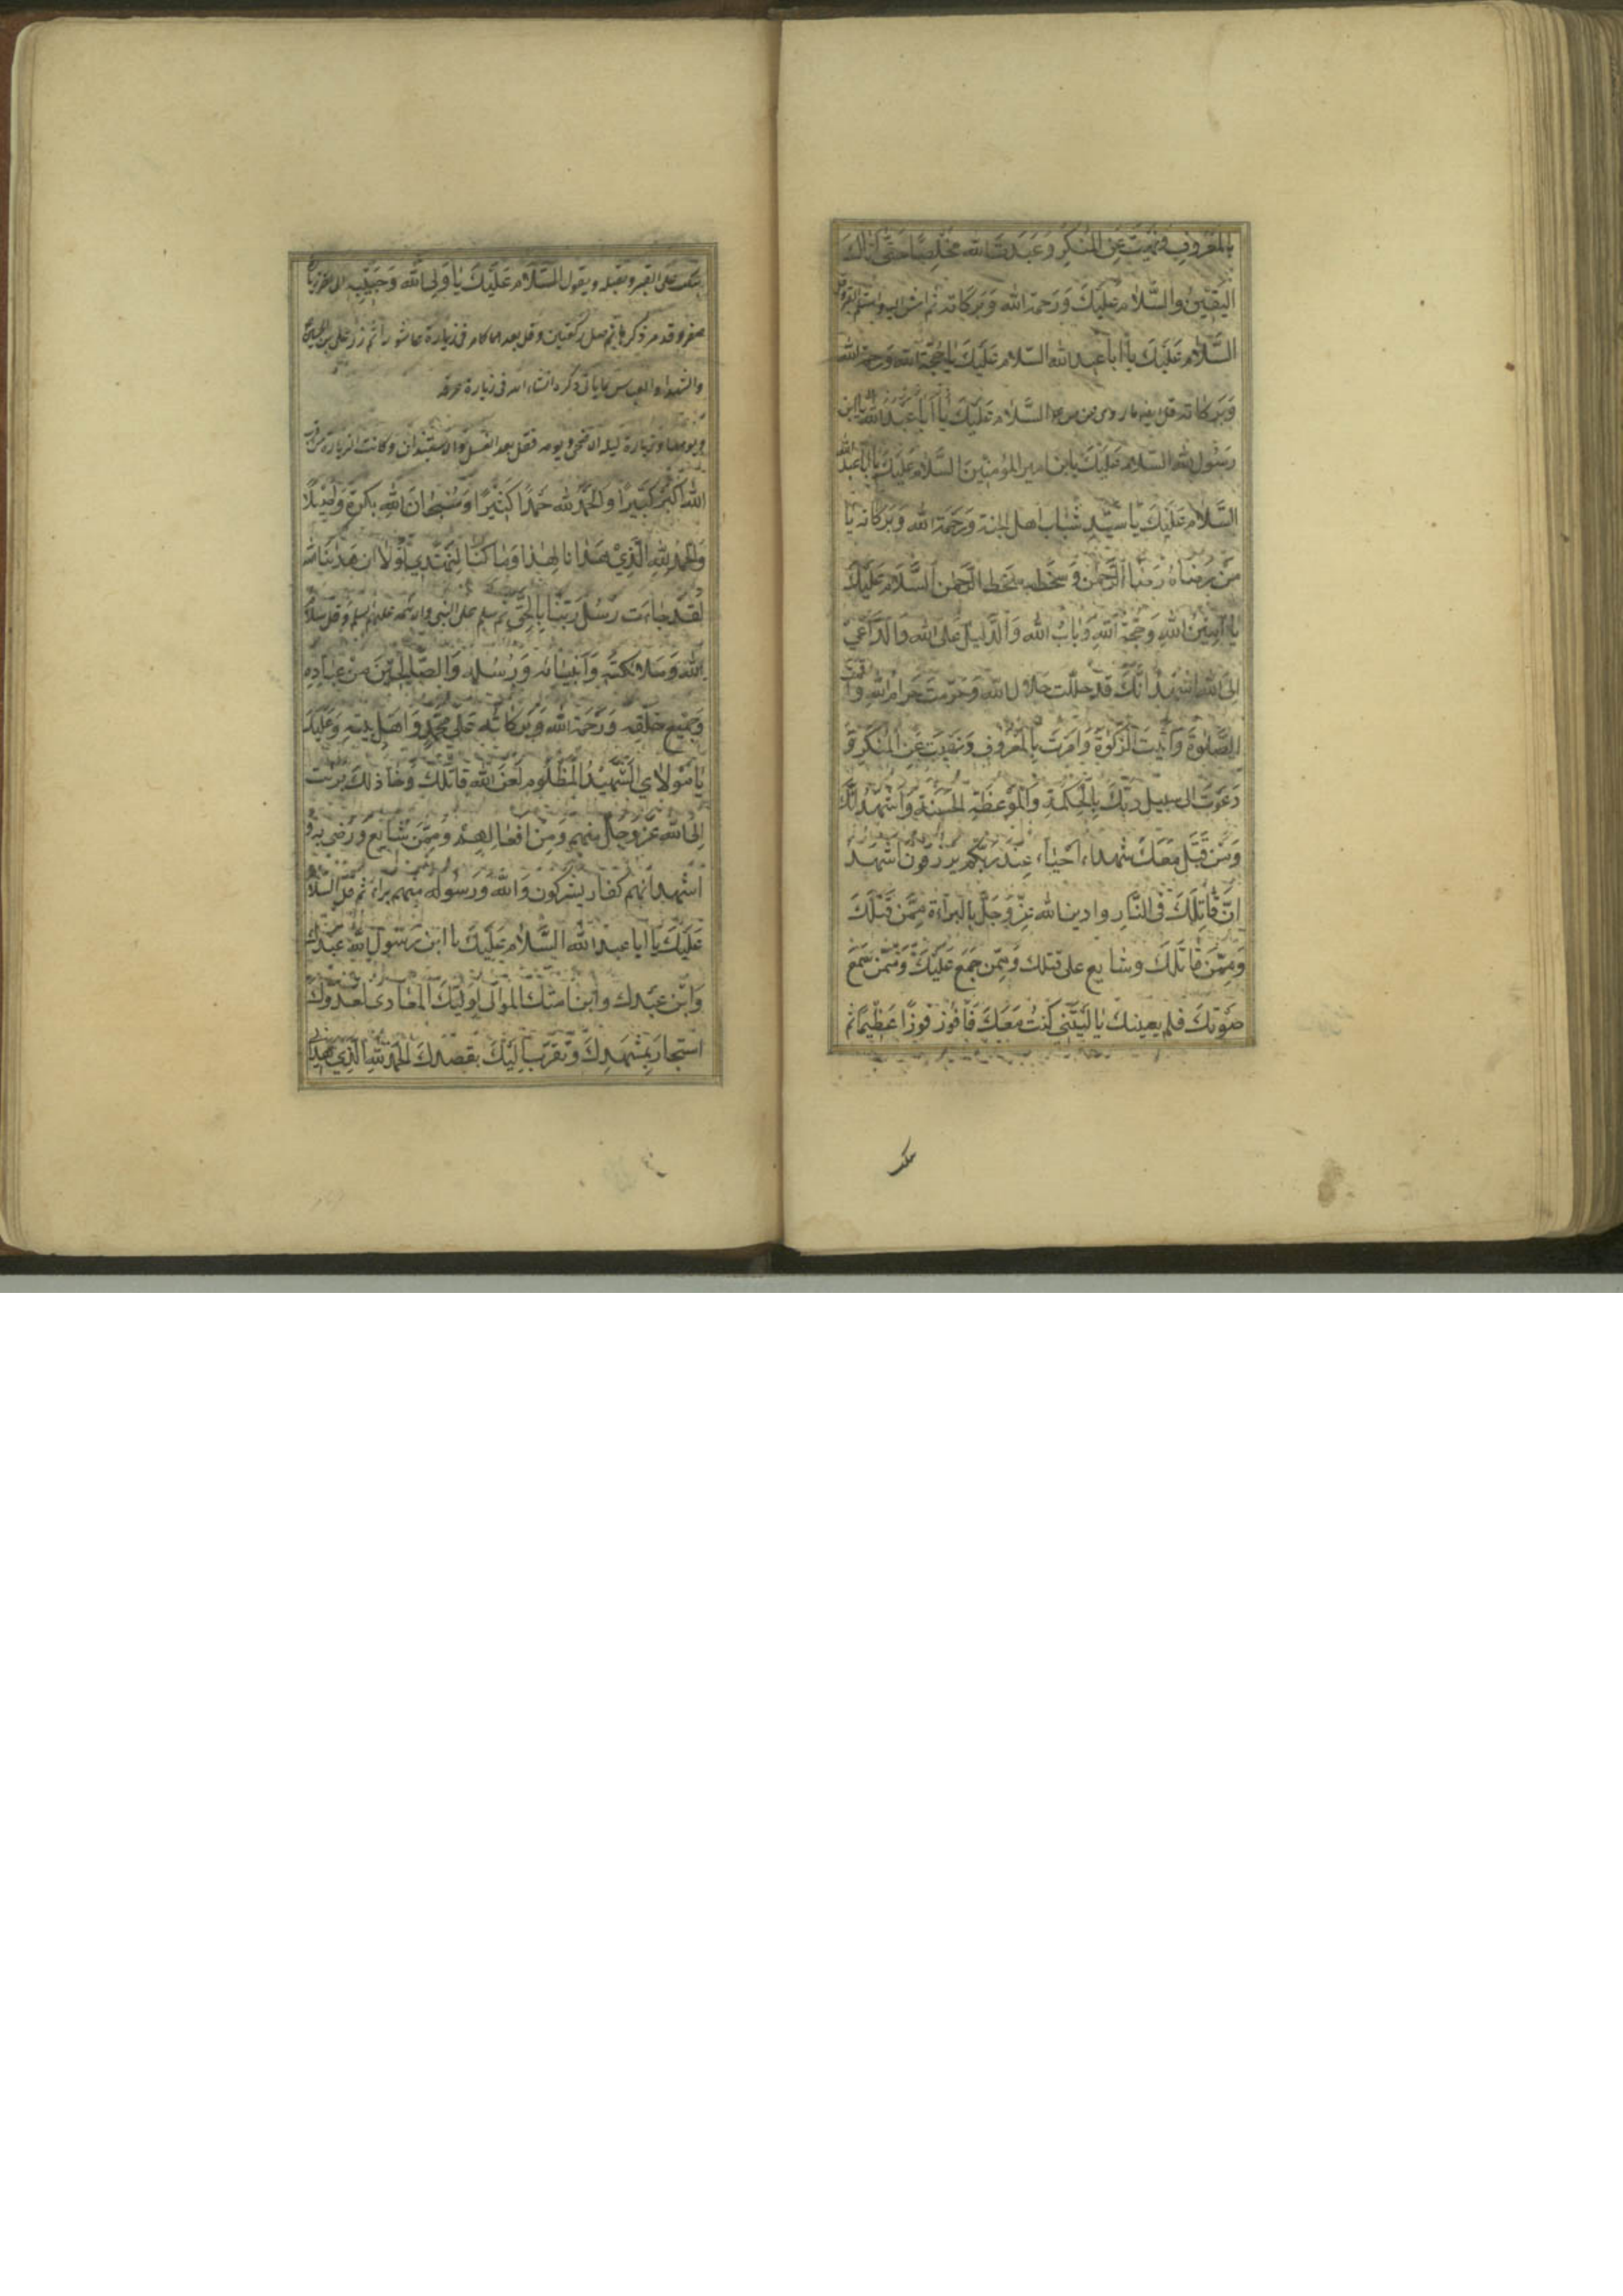 بِالْمَعْرُوفِ وَنَهَيْتَ عَنِ الْمُنْكَرِ وَعَبَدْتَ الله مُخْلِصًا حَتّٰى اَتٰاكَ
الْيَقِيْنُ وَالسَّلَامُ عَلَيْكَ وَرَحْمَةُ الله وَبَرَكَاتُهُ ثم
السَّلَامُ عَلَيْكَ يَا اَبَا عبد الله السّلام عَلَيْكَ يَا حُجَّةَ الله وَرَحمة الله
وَبَرَكَاته السَّلَام عَلَيْكَ يَا اَبَا عَبْدِ الله يا ابن
رَسُولِ الله السّلام عَلَيْكَ يابن امير المؤمنين السَّلام عَلَيْكَ يا ابا عبد الله
السَّلَام عَلَيْكَ يَا سَيِّدِ شَبَابِ اَهلِ الجنة وَرَحْمَة الله وَبَرَكَاته يَا
مَنْ رِضَاهُ رِضَا الرَّحْمٰن وَسَخَطه سَخَط الرَّحمٰن السَّلَام عَلَيْكَ
يَا اَمِيْنَ اللهِ وَحُجَّة اللهِ وَبَابَ الله وَالدَّلِيْلَ عَلَى الله وَالدَّاعِيَ
اِلَى الله اشهد اَنَّكَ قَد حلَّلت حلال الله وَحَرَّمتَ حَرام الله وَاَقمت
الصَّلٰوةَ وَآتَيْتَ الزَّكٰوةَ وَاَمَرْتَ بِالْمَعْرُوفِ وَنَهَيْتَ عَنِ الْمُنْكَرِ وَ
دَعَوْتَ الى سبيل رَبِّكَ بِالْحِكْمَةِ وَالْمَوْعِظَةِ الْحَسَنَةِ وَاَشْهَدُ اَنَّكَ
وَمَنْ قُتِلَ مَعَكَ شهداء اَحْيَاء عِنْدَ رَبِّكُم يرزقون اشهد
اَنَّ قَاتِلَكَ فى النَّارِ وادين الله عَزَّ وَجَلَّ بِالبرآءَة مِمَّن قَتَلَكَ
وَمِمَّنْ قَاتَلَكَ وشايع على قتلك وَمِمَّن جَمَع عَلَيْكَ وَمِمَّنْ سَمِعَ
صَوْتَكَ فلم يعينك يَا لَيْتَنِي كُنْتُ مَعَكَ فَاَفُوْزَ فَوْزًا عَظِيْمًا ثم
ينكب
ينكب على القبر ويقبله ويقول السَّلَام عَلَيْكَ يَا وَلِىَّ الله وَحَبِيْبِه الى
صفر وقد مر ذكرها ثم صل ركعتين وقل بعدهما كما مر فى زيارة عاشورا ثم زر على بن الحسين
والشهدا والعباس بما ياتى ذكره انشاء الله فى زيارة عرفه
زيارة ليلة الاضحى ويومه فقل بعد الغسل والاستيذان
الله اَكْبَرُ كَبِيْرًا وَالحَمْدُ لله حَمْدًا كَثِيْرًا وَسُبْحَانَ اللهِ بُكْرَةً وَاَصِيْلًا
وَالحَمْدُ لِلّٰهِ الَّذِيْ هَدَانَا لِهٰذَا وَمَا كُنَّا لِنَهْتَدِيَ لَوْلَا اَنْ هَدٰينَا الله
لَقَدْ جَاءَت رُسُلُ رَبِّنَا بِالْحَقِّ ثم سلم على النبى والائمه عليهم السلم وقل سَلَامُ
اللهِ وَمَلَائِكَتِهِ وَاَنْبِيَائه وَرُسُلِه وَالصَّالِحِيْنَ مِنْ عِبَادِهِ
وَجَمِيْعِ خَلْقِهِ وَرَحْمَة الله وَبَرَكَاتُه عَلٰى مُحَمَّدٍ وَاَهْلِ بَيْتِهِ وَعَلَيْكَ
يَا مَوْلَايَ الشَّهِيْدُ الْمَظْلُوم لَعَنَ الله قَاتلك وَخَاذلك برئت
اِلَى الله عَزَّ وَجَلَّ منهم وَمِنْ افعالهم وَمِمَّنْ شَايَعَ وَرَضِيَ بِهِ وَ
اشهد انهم كفار يشركون وَالله وَرَسُوله منهم براء ثم قل السَّلَام
عَلَيْكَ يَا ابا عبد الله السَّلَام عَلَيْكَ يا ابن رَسُولِ الله عَبْدك
وَابْن عَبْدك وابن امتك الموالى لِوَلِيّكَ المعادى لعدوّك
استجارَ بِمَشْهَدِكَ وَتقرّب اِلَيْكَ بقصدكَ الْحَمْدُ لِلّٰهِ الَّذِي هدانى